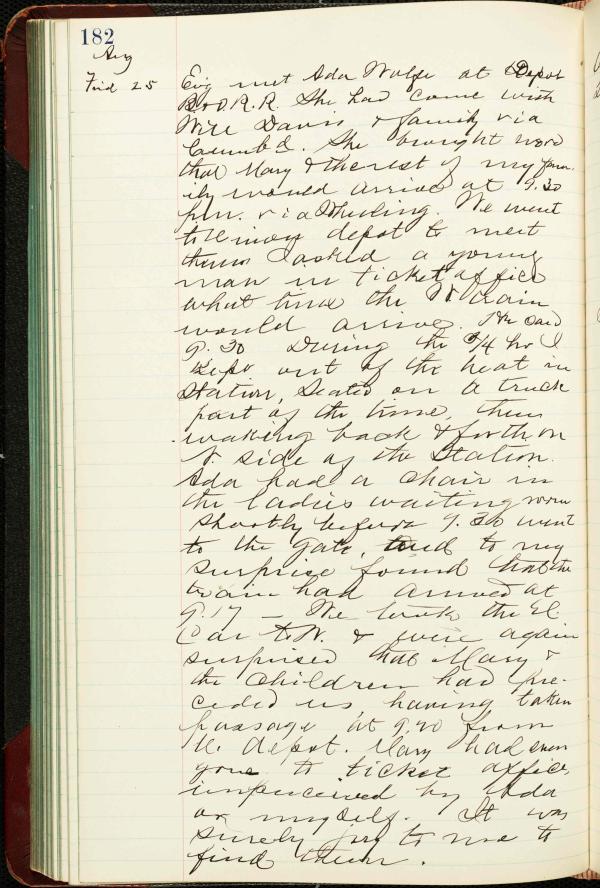 182
Aug
Frid 25
Evg met Ada Wolfe at Depot
B & O. R.R. She had come with
Will Davis & family via
Cumb'd. She brought word
that Mary & the rest of my fam-
ily would arrive at 9.30
p.m. via Wheeling. We went
to Union depot to meet
them I asked a young
man in ticket office
what time the W train
would arrive. He said
9.30 During the 3/4 hr I
kept out of the heat in
Station, Seated on a truck
part of the time, then
walking back & forth on
N. side of the Station.
Ada had a chair in
the ladies waiting room
Shortly before 9.30 went
to the gate, and to my
surprise found that the
train had arrived at
9.17 - We took the El.
Car to W. & were again
surprised that Mary &
the children had pre-
ceded us, having taken
passage at 9.20 from
U. depot. Mary had even
gone to ticket office,
unperceived by Ada
or myself. It was
surely joy to me to
find them.